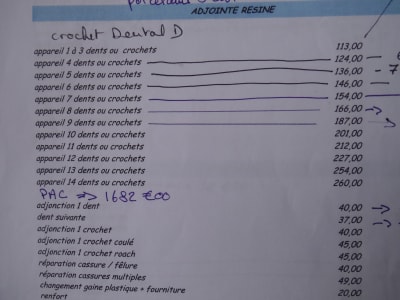 ADJOINTE RESINE
crochet Dental D
appareil 1 à 3 dents ou crochets 113,00
appareil 4 dents ou crochets 124,00
appareil 5 dents ou crochets 136,00
appareil 6 dents ou crochets 146,00
appareil 7 dents ou crochets 154,00
appareil 8 dents ou crochets 166,00
appareil 9 dents ou crochets 187,00
appareil 10 dents ou crochets 201,00
appareil 11 dents ou crochets 212,00
appareil 12 dents ou crochets 227,00
appareil 13 dents ou crochets 254,00
appareil 14 dents ou crochets 260,00
PAC => 1682 €00
adjonction 1 dent 40,00
dent suivante 37,00
adjonction 1 crochet 40,00
adjonction 1 crochet coulé 45,00
adjonction 1 crochet roach 45,00
réparation cassure / fêlure 40,00
réparation cassures multiples 49,00
changement gaine plastique + fourniture 30,00
renfort 20,00